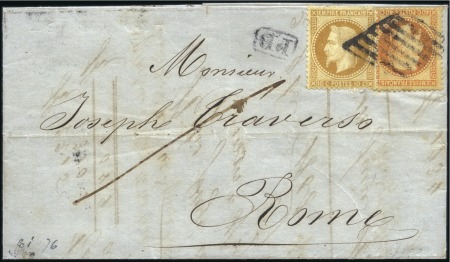 EMPIRE FRANÇAIS
10 C POSTES 10 C
P.D.
Monsieur
Joseph Traverso
Rome
76